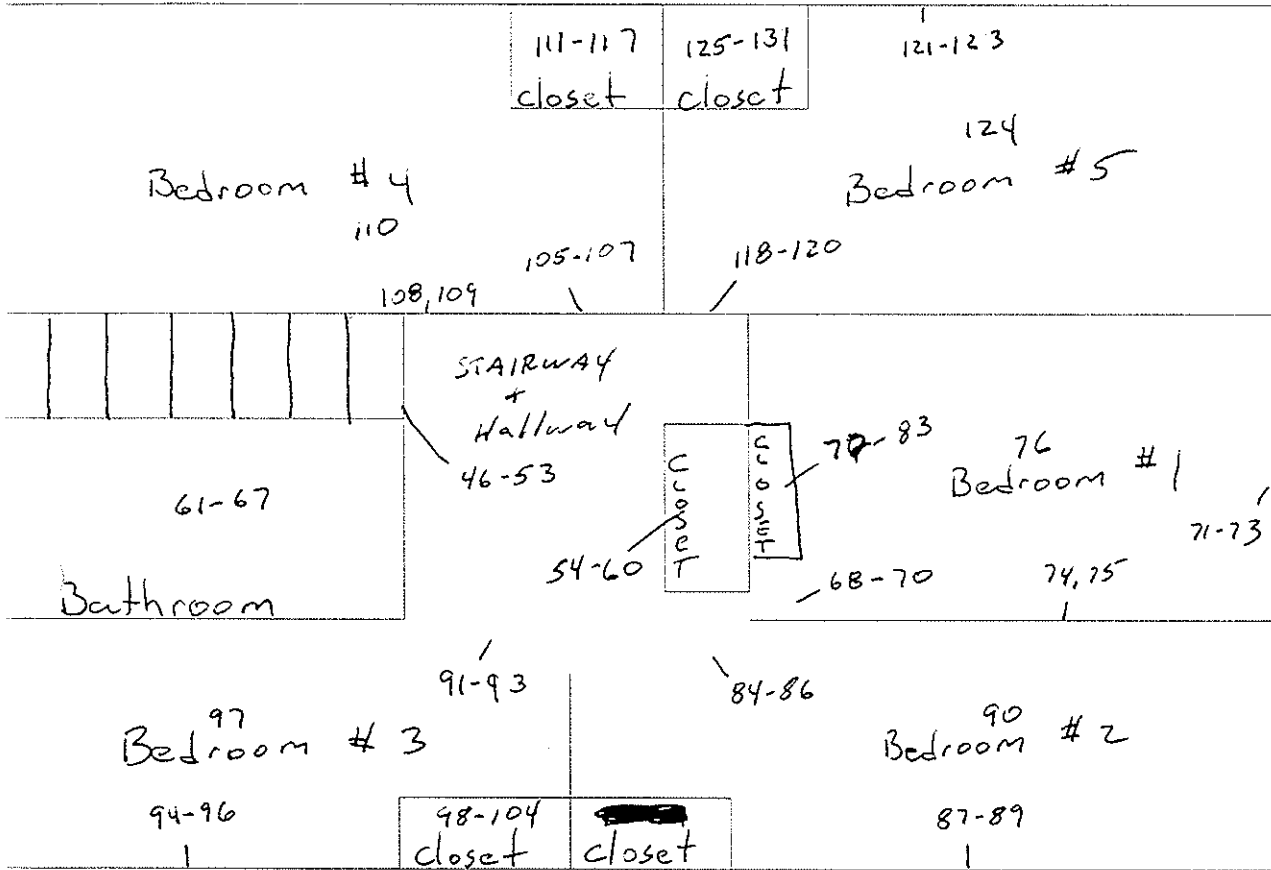 111-117
closet
125-131
closet
121-123
124
Bedroom # 5
Bedroom # 4
110
105-107
118-120
108,109
STAIRWAY
+
Hallway
46-53
61-67
Bathroom
CLOSET
54-60
CLOSET
76
Bedroom # 1
71-73
68-70
74,75
91-93
84-86
97
Bedroom # 3
90
Bedroom # 2
94-96
98-104
closet
closet
87-89